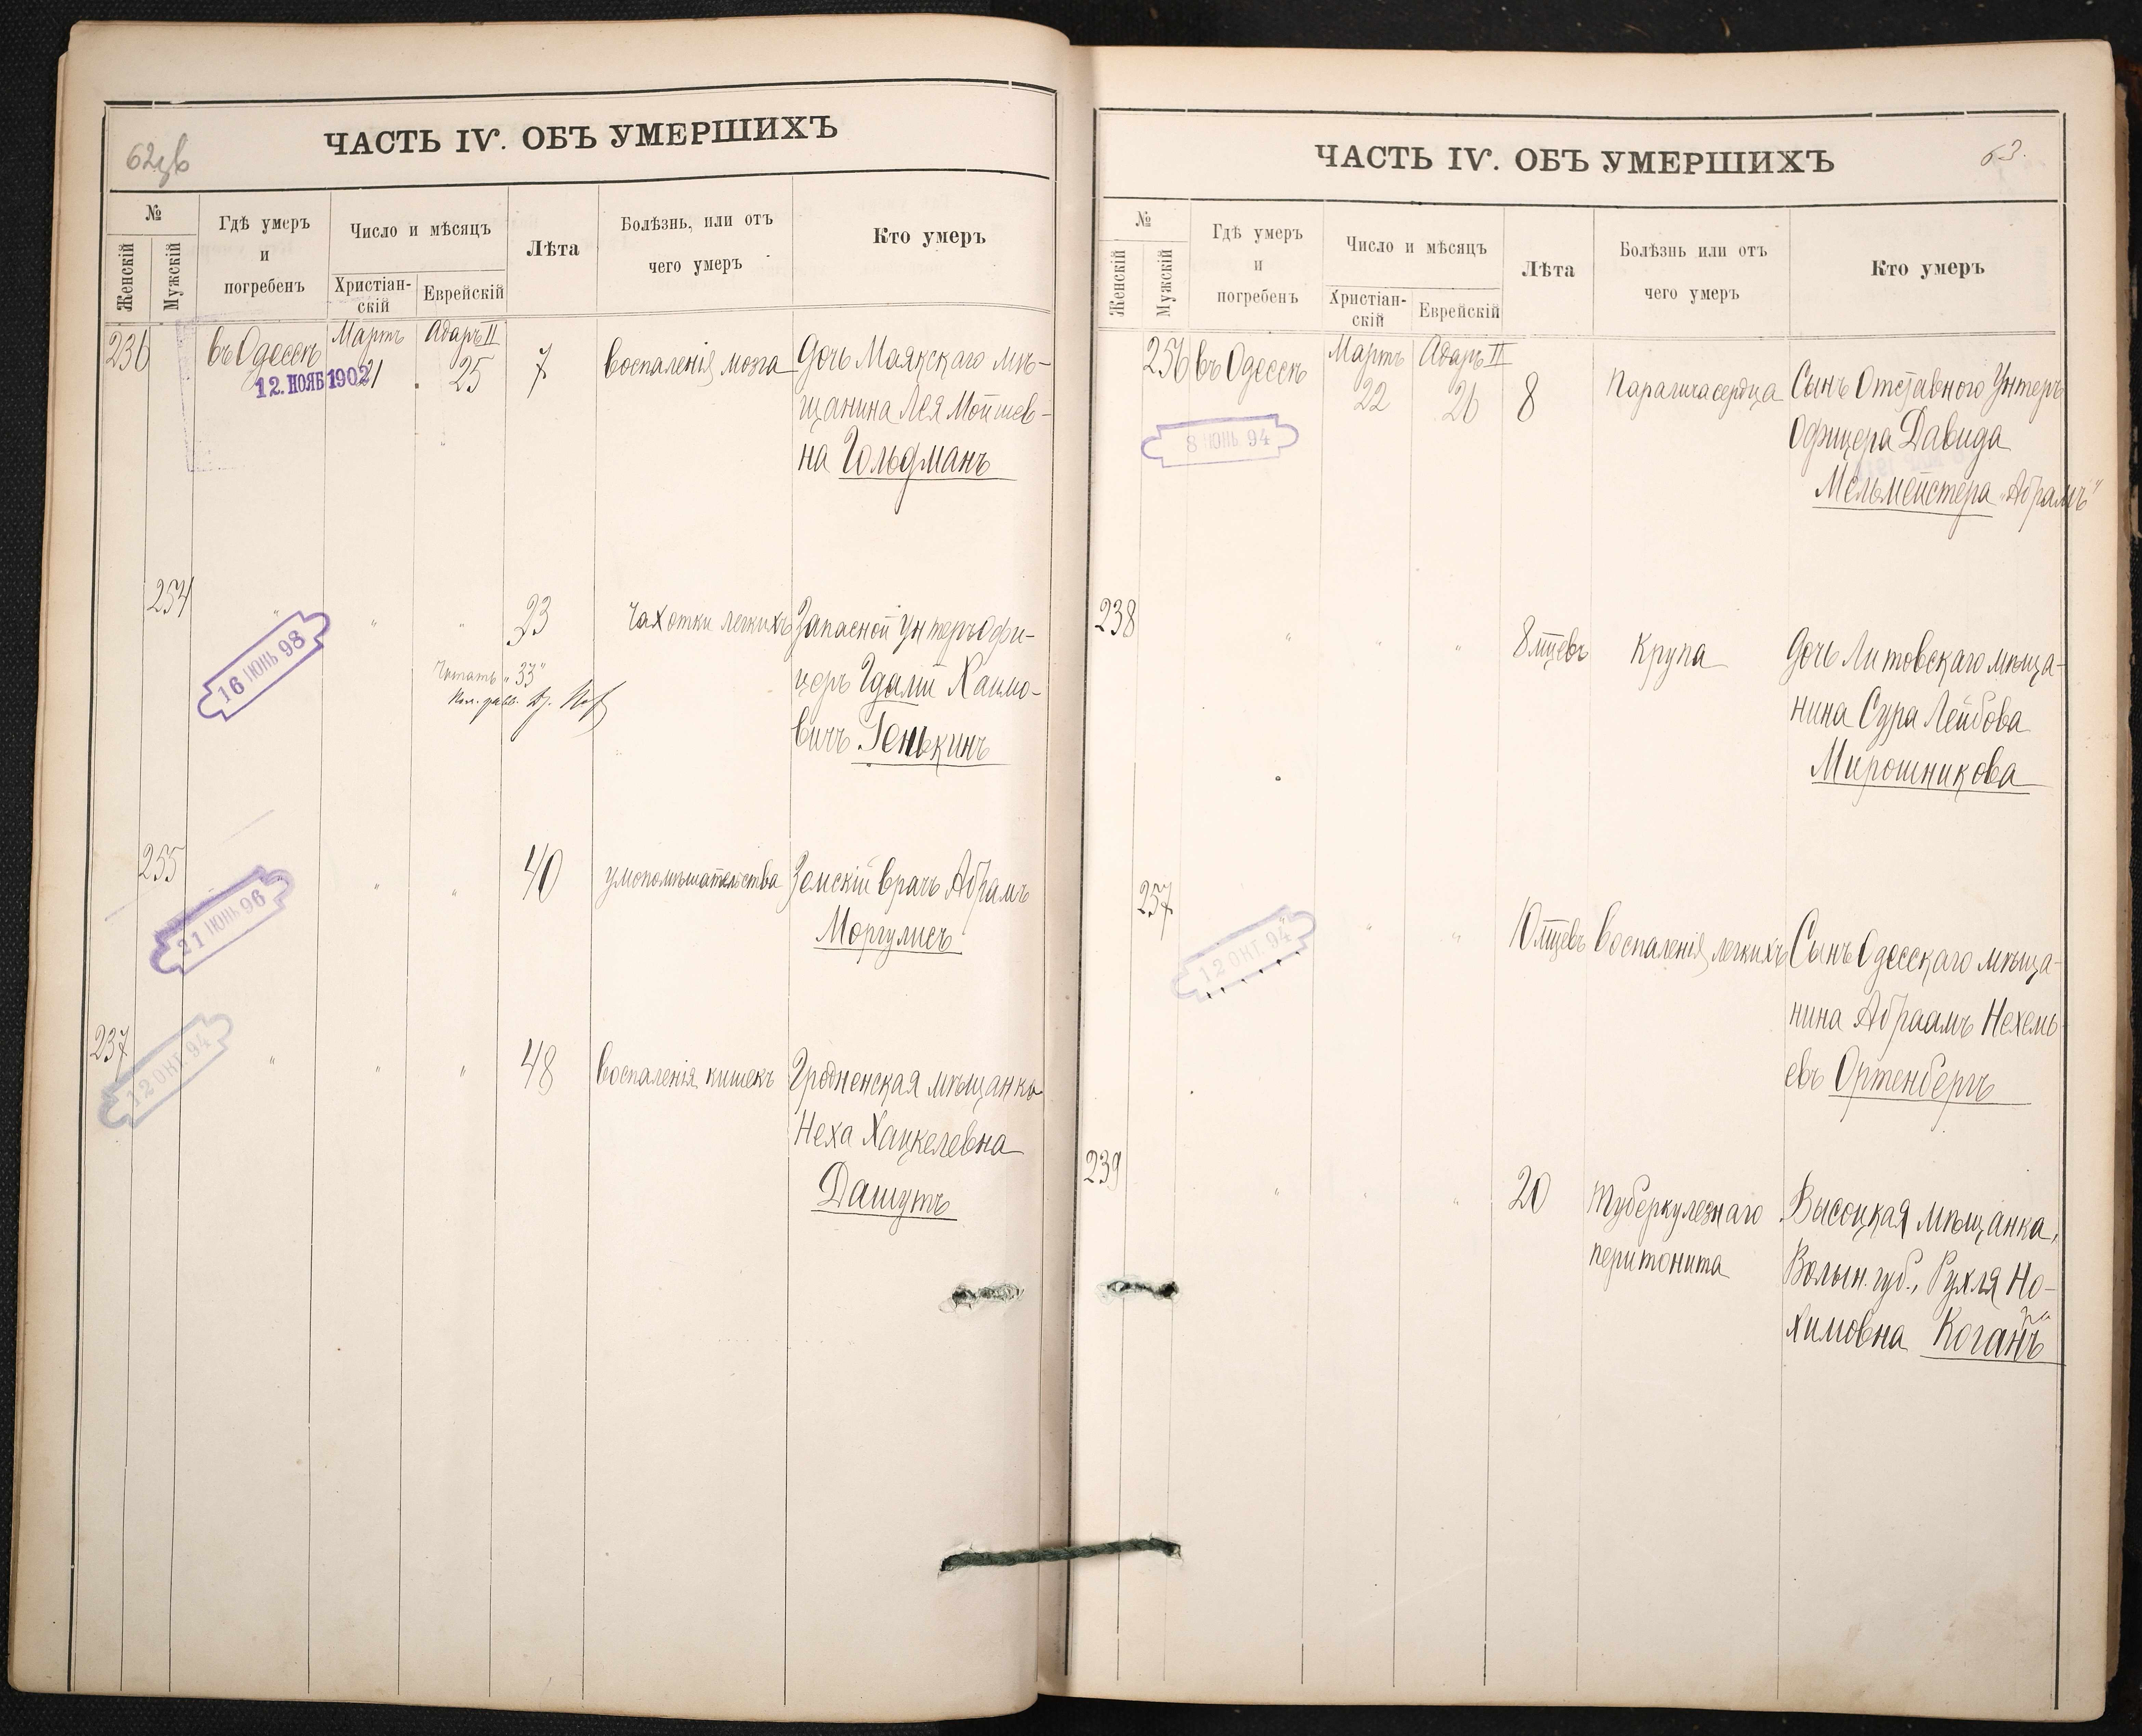 ЧАСТЬ IV. ОБЪ УМЕРШИХЪ
№
Женскій
Мужскій
Гдѣ умеръ
и
погребенъ
Число и мѣсяцъ
Христіан-
скій
Еврейскій
Лѣта
Болѣзнь, или отъ
чего умеръ
Кто умеръ
236 въ Одессѣ Мартъ 21 Адаръ II 25 7 воспаленія мозга Дочь Маякскаго мѣ-
12. НОЯБ 1902
щанина Лея Мойшев-
на Гольдманъ
254 " " " 23 Чахотки легкихъ Запасной унтеръ офи-
16 ІЮНЬ 98
Читать „33"
церъ Гдалій Хаимо-
вичъ Генькинъ
255 " " 40 умопомѣшательства Земскій врачъ Абрамъ
21 ІЮНЬ 96
Моргулисъ
237 " " " 48 воспаленія кишекъ Гродненская мѣщанка
12 ОКТ. 94
Неха Хацкелевна
Дашутъ
ЧАСТЬ IV. ОБЪ УМЕРШИХЪ
63.
№
Женскій
Мужскій
Гдѣ умеръ
и
погребенъ
Число и мѣсяцъ
Христіан-
скій
Еврейскій
Лѣта
Болѣзнь или отъ
чего умеръ
Кто умеръ
256 въ Одессѣ Мартъ 22 Адаръ II 26 8 Паралича сердца Сынъ Отставного Унтеръ
8 ІЮНЬ 94
Офицера Давида
Мельмейстера „Абрамъ"
238 " " " 8 мцевъ Крупа Дочь Литовскаго мѣща-
нина Сура Лейбова
Мирошникова
257 " " " 10 мцевъ воспаленія легкихъ Сынъ Одесскаго мѣща-
12 ОКТ. 94
нина Абраамъ Нехемь-
евъ Ортенбергъ
239 " " " 20 Туберкулезнаго Высоцкая мѣщанка,
перитонита Волын. губ., Рухля Но-
химовна Коганъ